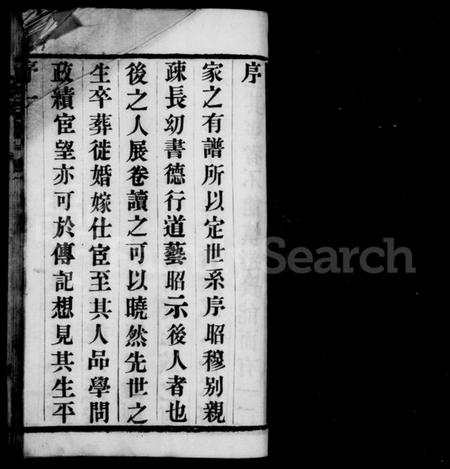 序
家之有譜所以定世系序昭穆別親
疎長幼書德行道藝昭示後人者也
後之人展卷讀之可以曉然先世之
生卒葬徙婚嫁仕宦至其人品學問
政績宦望亦可於傳記想見其生平
序 一
Search